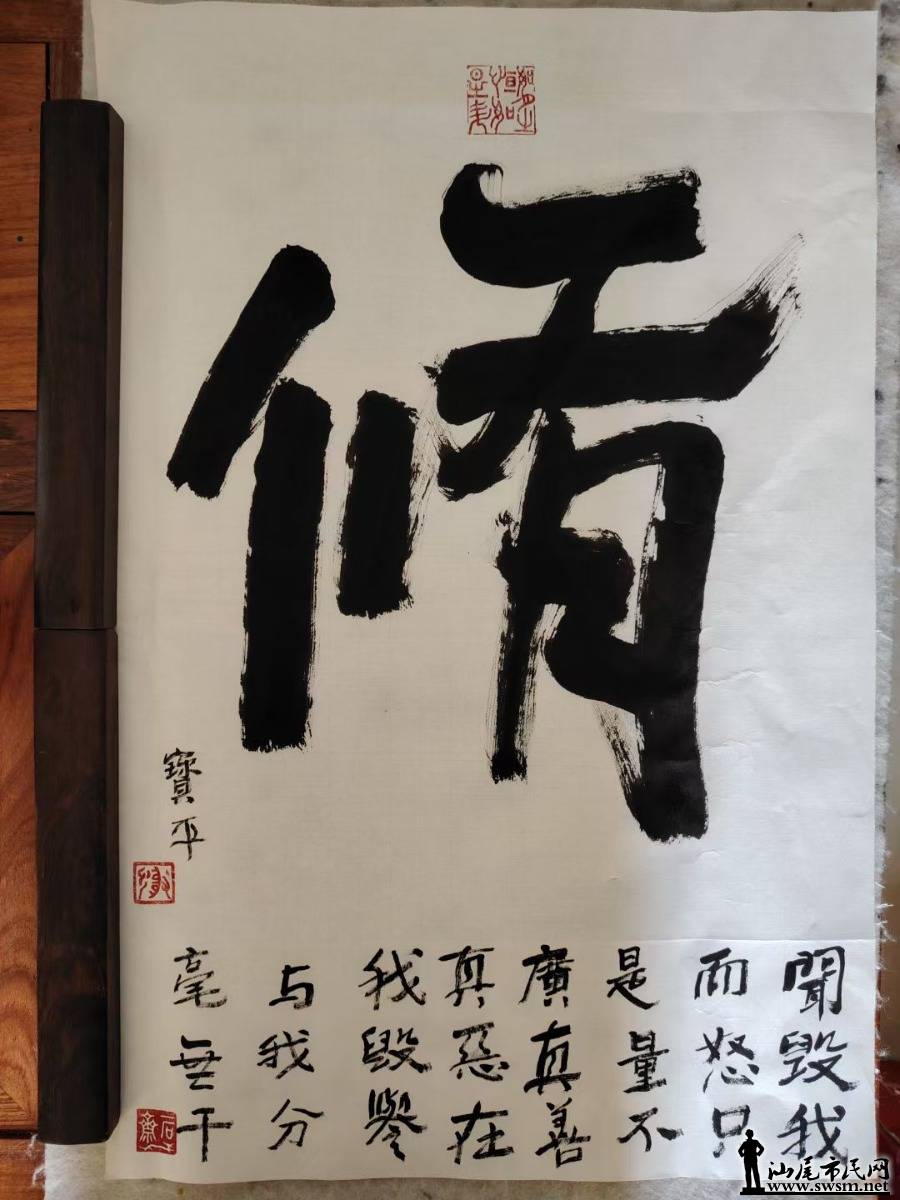 脩
寶平
聞毀我
而怒只
是量不
廣真善
真惡在
我毀譽
与我分
毫無干
汕尾市民网
www.swsm.net